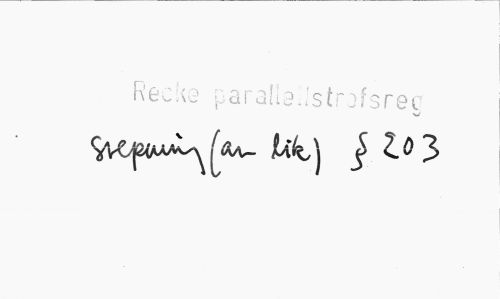 Recke parallellstrofsreg
svepning (av lik) § 203